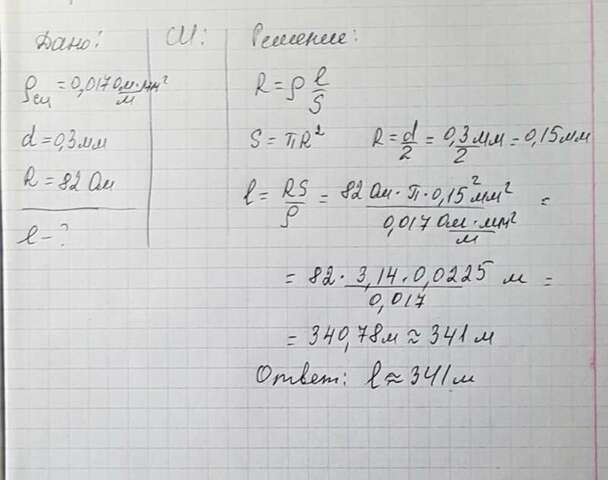 Дано:
ρси = 0,017 Ом·мм²/м
d = 0,3 мм
R = 82 Ом
l - ?
СИ:
Решение:
R = ρ l/S
S = πR² R = d/2 = 0,3 мм/2 = 0,15 мм
l = RS/ρ = 82 Ом · π · 0,15² мм² / 0,017 Ом · мм²/м =
= 82 · 3,14 · 0,0225 / 0,017 м =
= 340,78 м ≈ 341 м
Ответ: l ≈ 341 м